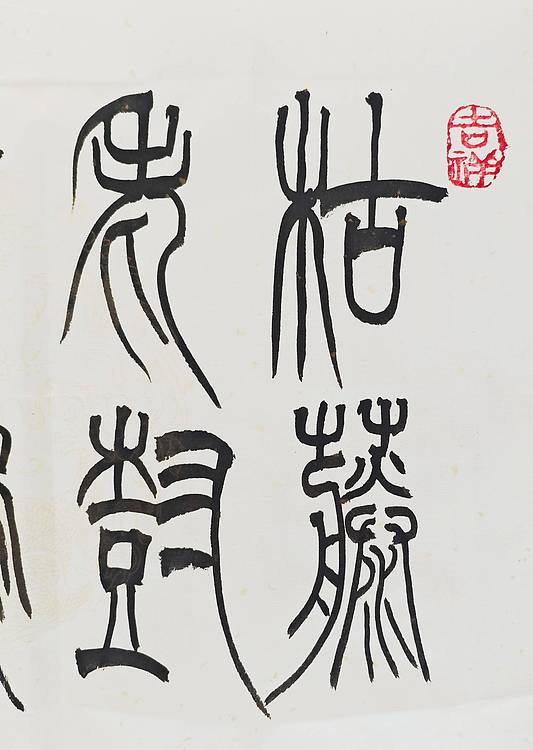 吉祥
枯藤
老樹